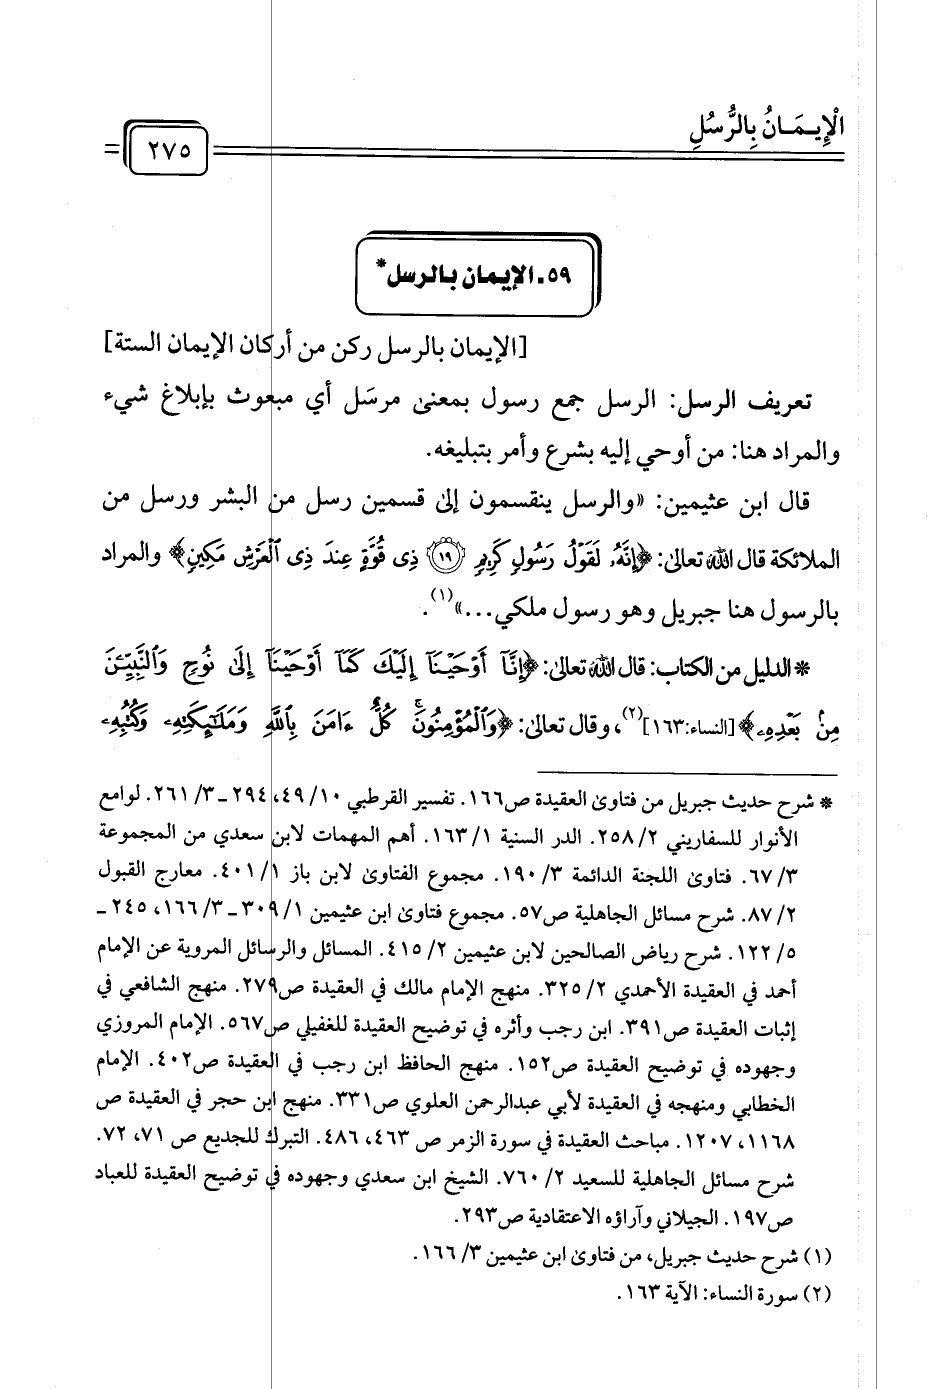 الْإِيـمَـانُ بِالرُّسُلِ
٢٧٥
٥٩ـ الإيمان بالرسل*
[الإيمان بالرسل ركن من أركان الإيمان الستة]
تعريف الرسل: الرسل جمع رسول بمعنى مرسَل أي مبعوث بإبلاغ شيء
والمراد هنا: من أوحي إليه بشرع وأمر بتبليغه.
قال ابن عثيمين: «والرسل ينقسمون إلى قسمين رسل من البشر ورسل من
الملائكة قال الله تعالى: ﴿إِنَّهُۥ لَقَوْلُ رَسُولٍ كَرِيمٍ ﴿١٩﴾ ذِى قُوَّةٍ عِندَ ذِى ٱلْعَرْشِ مَكِينٍ﴾ والمراد
بالرسول هنا جبريل وهو رسول ملكي...»(١).
* الدليل من الكتاب: قال الله تعالى: ﴿إِنَّآ أَوْحَيْنَآ إِلَيْكَ كَمَآ أَوْحَيْنَآ إِلَىٰ نُوحٍ وَٱلنَّبِيِّۦنَ
مِنۢ بَعْدِهِۦ﴾ [النساء:١٦٣](٢)، وقال تعالى: ﴿وَٱلْمُؤْمِنُونَ ۚ كُلٌّ ءَامَنَ بِٱللَّهِ وَمَلَـٰٓئِكَتِهِۦ وَكُتُبِهِۦ
* شرح حديث جبريل من فتاوى العقيدة ص١٦٦. تفسير القرطبي ١٠/ ٤٩، ٢٩٤ ـ ٣/ ٢٦١. لوامع
الأنوار للسفاريني ٢/ ٢٥٨. الدر السنية ١/ ١٦٣. أهم المهمات لابن سعدي من المجموعة
٣/ ٦٧. فتاوى اللجنة الدائمة ٣/ ١٩٠. مجموع الفتاوى لابن باز ١/ ٤٠١. معارج القبول
٢/ ٨٧. شرح مسائل الجاهلية ص٥٧. مجموع فتاوى ابن عثيمين ١/ ٣٠٩ ـ ٣/ ١٦٦، ٢٤٥ ـ
٥/ ١٢٢. شرح رياض الصالحين لابن عثيمين ٢/ ٤١٥. المسائل والرسائل المروية عن الإمام
أحمد في العقيدة الأحمدي ٢/ ٣٢٥. منهج الإمام مالك في العقيدة ص٢٧٩. منهج الشافعي في
إثبات العقيدة ص٣٩١. ابن رجب وأثره في توضيح العقيدة للغفيلي ص٥٦٧. الإمام المروزي
وجهوده في توضيح العقيدة ص١٥٢. منهج الحافظ ابن رجب في العقيدة ص٤٠٢. الإمام
الخطابي ومنهجه في العقيدة لأبي عبدالرحمن العلوي ص٣٣١. منهج ابن حجر في العقيدة ص
١١٦٨، ١٢٠٧. مباحث العقيدة في سورة الزمر ص ٤٦٣، ٤٨٦. التبرك للجديع ص ٧١، ٧٢.
شرح مسائل الجاهلية للسعيد ٢/ ٧٦٠. الشيخ ابن سعدي وجهوده في توضيح العقيدة للعباد
ص١٩٧. الجيلاني وآراؤه الاعتقادية ص٢٩٣.
(١) شرح حديث جبريل، من فتاوى ابن عثيمين ٣/ ١٦٦.
(٢) سورة النساء: الآية ١٦٣.